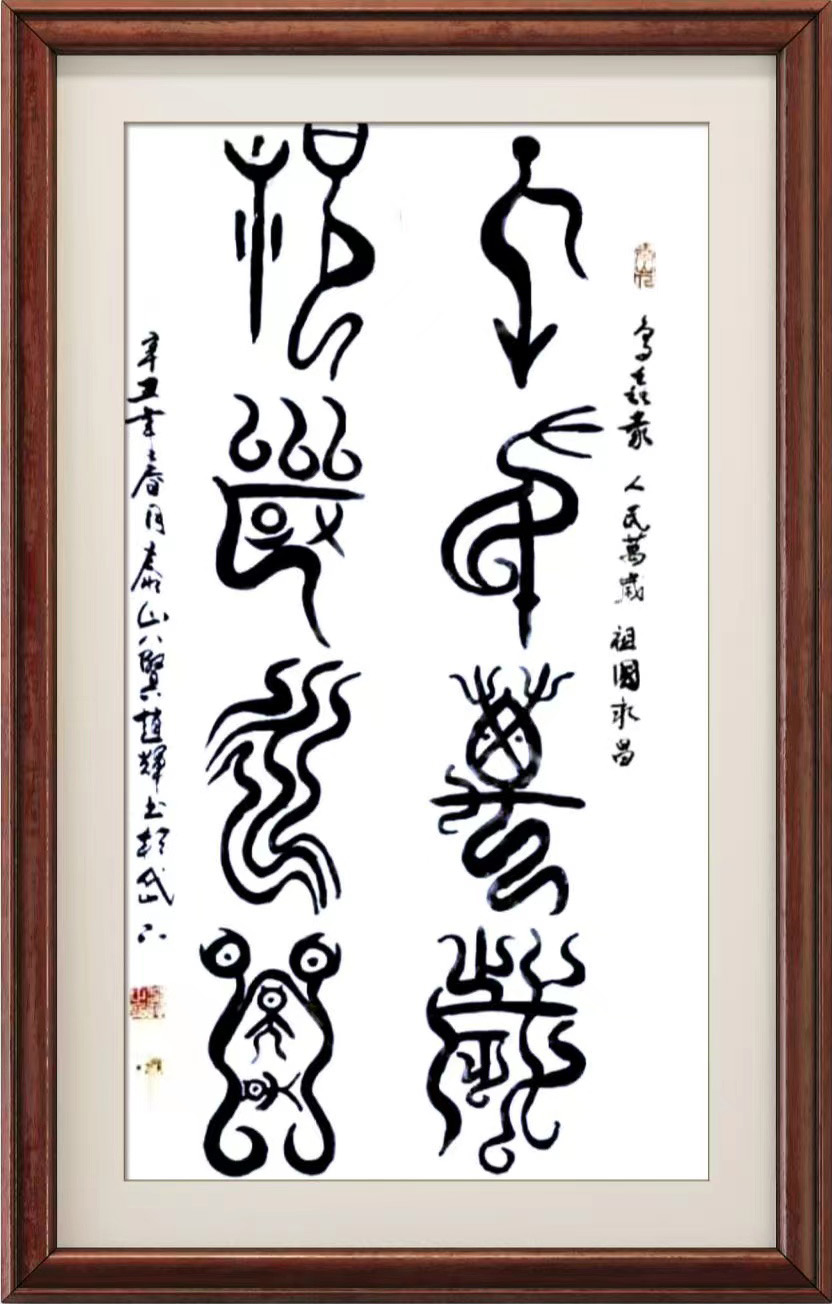 鳥蟲篆 人民萬歲 祖國永昌
人民萬歲
祖國永昌
辛丑年春月泰山八賢趙輝书於岱下